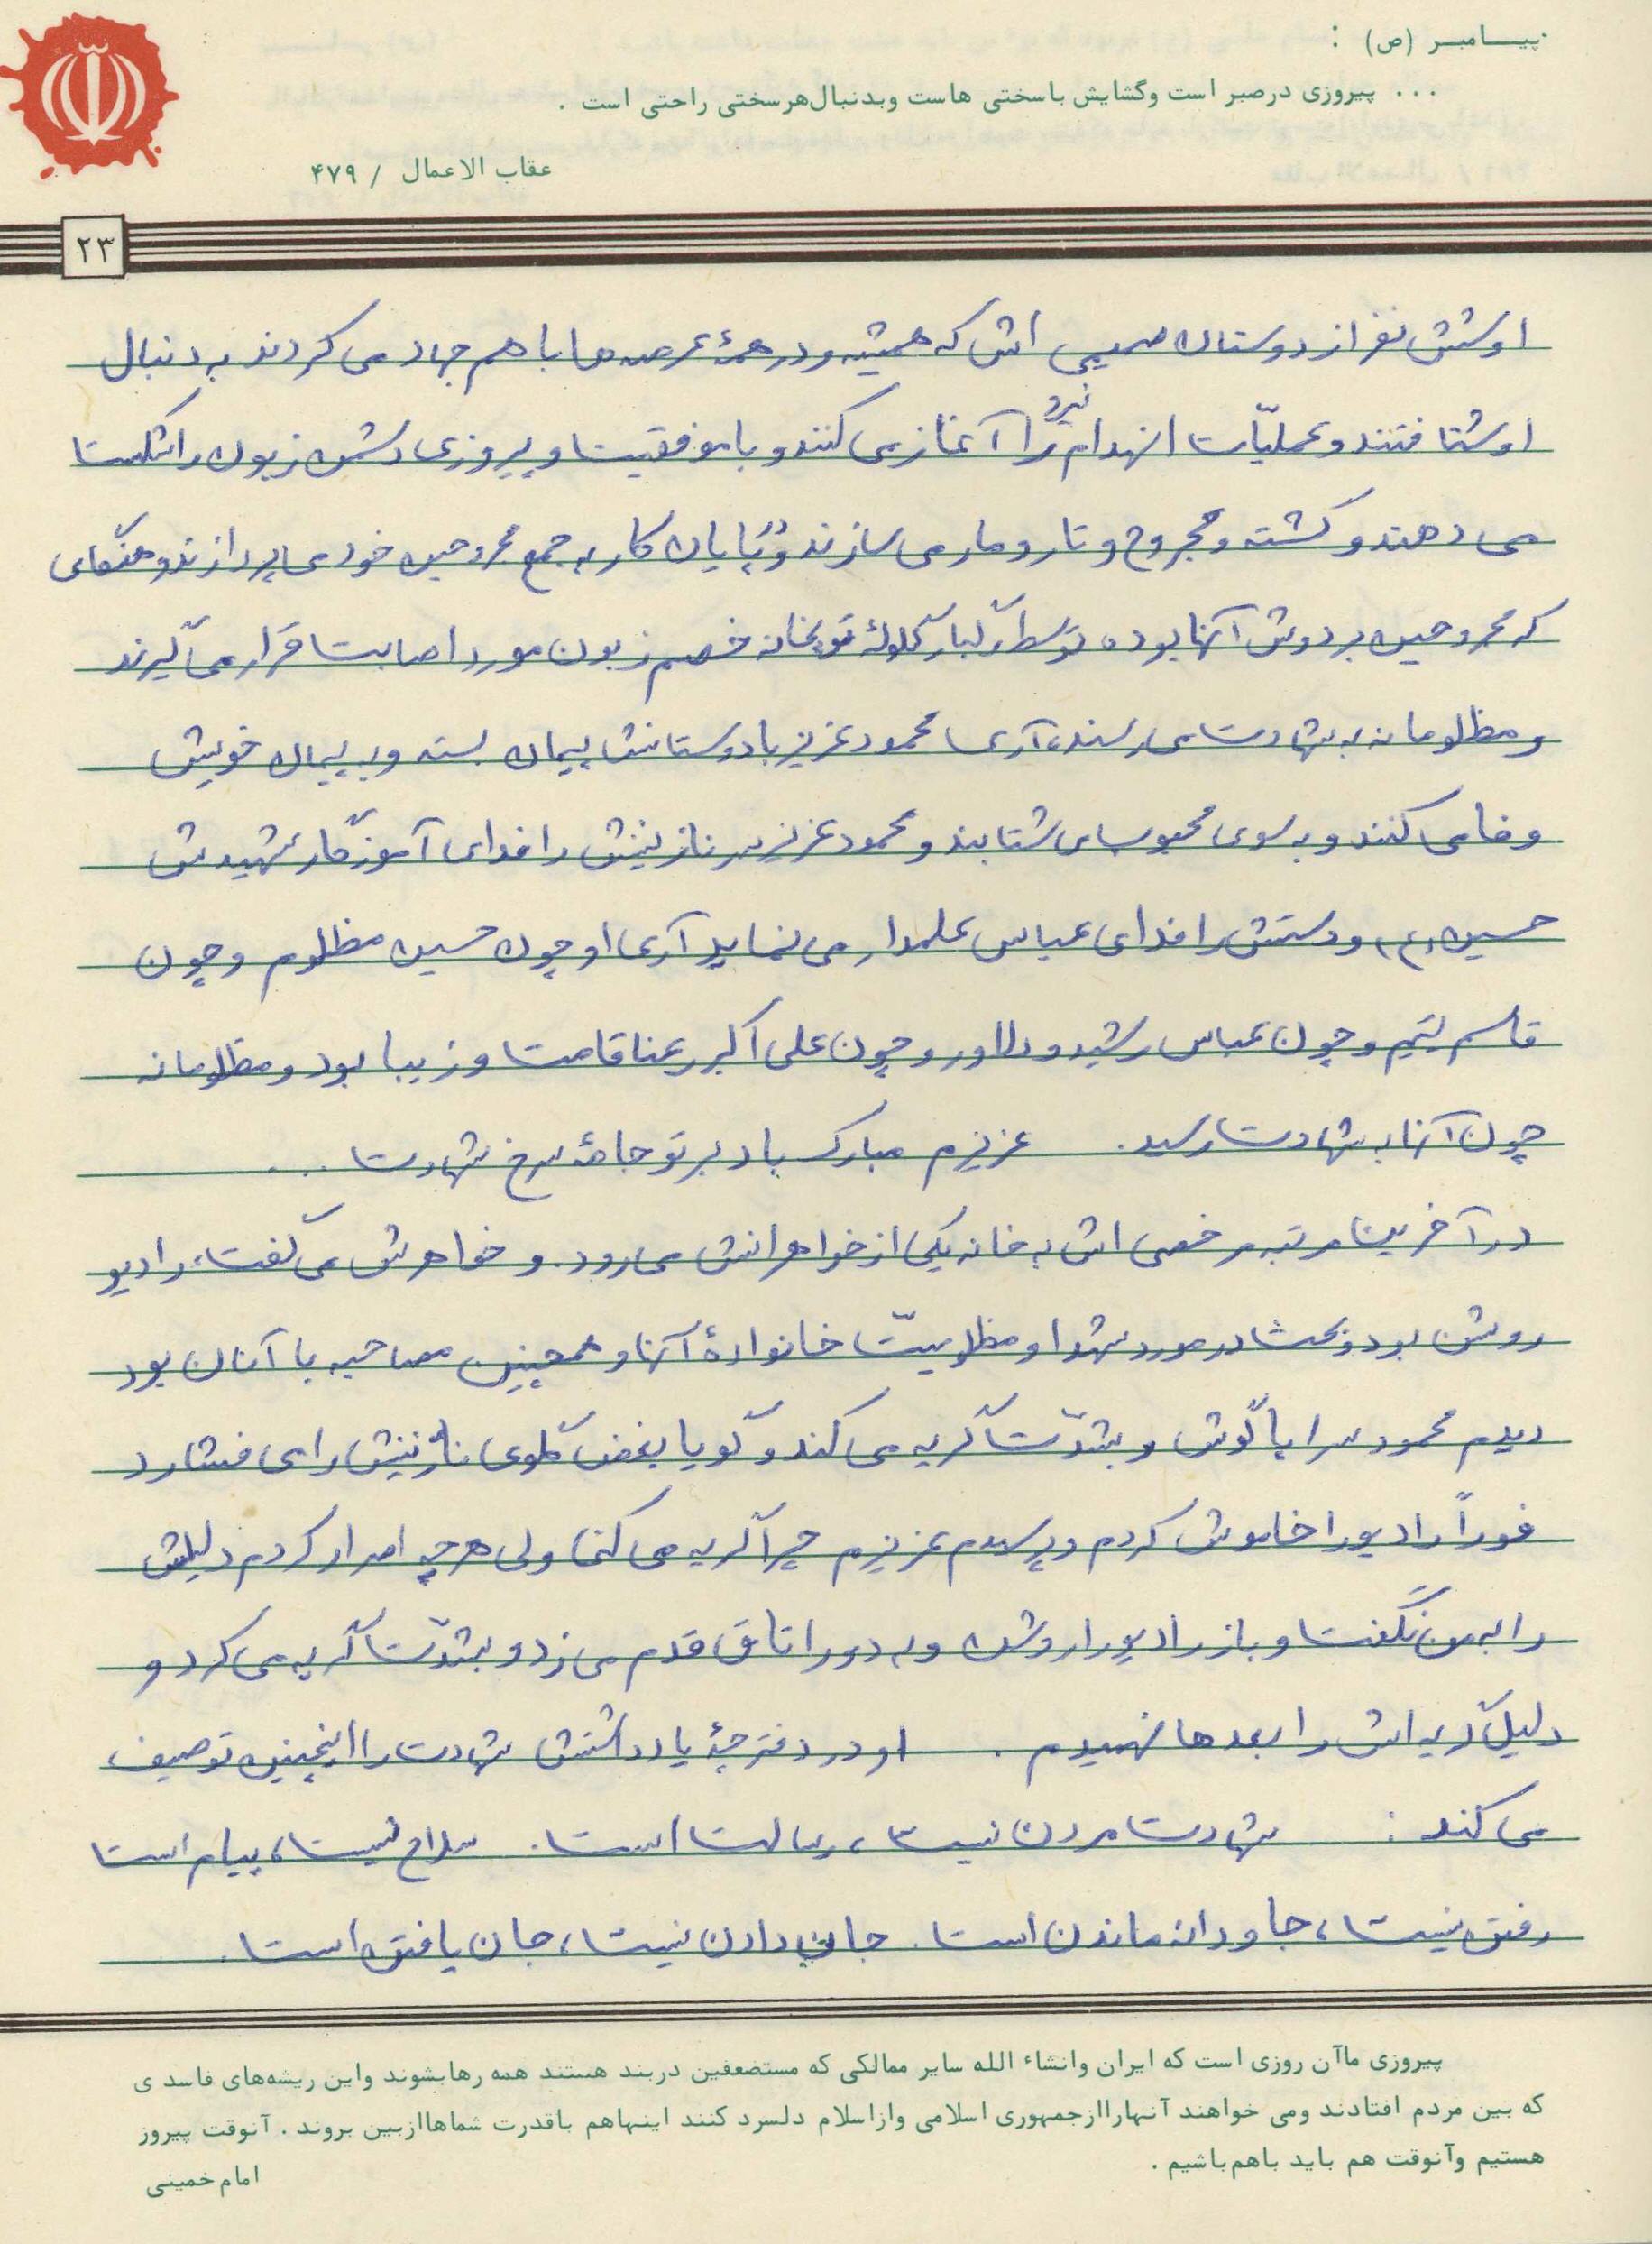 پیـــامبـــر (ص) :
... پیروزی درصبر است وگشایش باسختی هاست وبدنبال هرسختی راحتی است .
عقاب الاعمال / ۴۷۹
۲۳
او شش نفر از دوستان صمیمی اش که همیشه و در همهٔ عرصه ها با هم جهاد می کردند به دنبال
او شتافتند و عملیّات انهدام نیرو را آغاز می کنند و با موفقیت و پیروزی دشمن زبون را شکست
می دهند و کشته و مجروح و تار و مار می سازند و در پایان کار به جمع مجروحین خود می پردازند و هنگامی
که مجروحین بر دوش آنها بوده توسط رگبار گلولهٔ توپخانه خصم زبون مورد اصابت قرار می گیرند
و مظلومانه به شهادت می رسند، آری محمود عزیز با دوستانش پیمان بسته و به پیمان خویش
وفا می کنند و به سوی محبوب می شتابند و محمود عزیز سر نازنینش را فدای آموزگار شهیدش
حسین (ع) و دستش را فدای عباس علمدار می نماید آری او چون حسین مظلوم و چون
قاسم یتیم و چون عباس رشید و دلاور و چون علی اکبر رعنا قامت و زیبا بود و مظلومانه
چون آنها به شهادت رسید. عزیزم مبارک باد بر تو جامهٔ سرخ شهادت ...
در آخرین مرتبه مرخصی اش به خانه یکی از خواهرانش می رود. و خواهرش می گفت، رادیو
روشن بود و بحث در مورد شهدا و مظلومیّت خانوادهٔ آنها و همچنین مصاحبه با آنان بود
دیدم محمود سراپا گوش و بشدّت گریه می کند و گویا بغض گلوی نازنینش را می فشارد
فوراً رادیو را خاموش کردم و پرسیدم عزیزم چرا گریه می کنی ولی هر چه اصرار کردم دلیلش
را به من نگفت و باز رادیو را روشن و به دور اتاق قدم می زد و بشدّت گریه می کرد و
دلیل گریه اش را بعدها فهمیدم . او در دفترچهٔ یادداشتش شهادت را اینچنین توصیف
می کند : شهادت مردن نیست، رسالت است. سلاح نیست، پیام است
رفتن نیست، جاودانه ماندن است. جان دادن نیست، جان یافتن است.
پیروزی ماآن روزی است که ایران وانشاء الله سایر ممالکی که مستضعفین دربند هستند همه رهابشوند واین ریشه‌های فاسد ی
که بین مردم افتادند ومی خواهند آنهاراازجمهوری اسلامی وازاسلام دلسرد کنند اینهاهم باقدرت شماهاازبین بروند . آنوقت پیروز
هستیم وآنوقت هم باید باهم باشیم .
امام خمینی